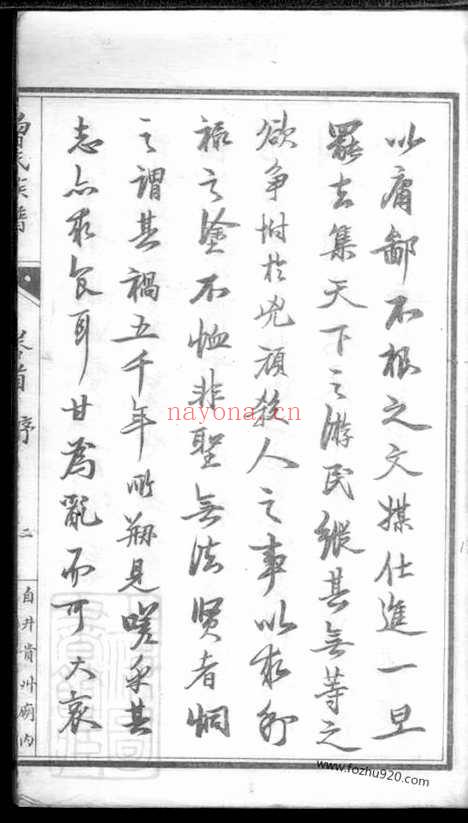 以庸鄙不根之文媒仕進一旦
罷去集天下之游民縱其無等之
欲爭附於兇頑殺人之事以求利
祿之塗不恤非聖無法賢者恫
之謂其禍五千年所罕見嗟乎其
志亦求食耳甘為亂而可大哀
曾氏族譜
卷首 序
二
自井貴州廟內
nayona.cn
www.fozhu920.com